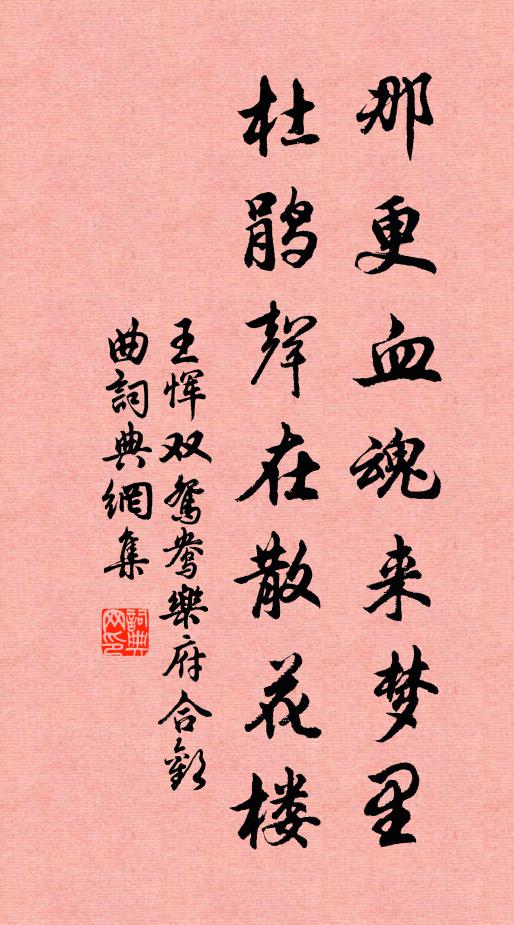 那更血魂来梦里
杜鹃声在散花楼
王恽双鸳鸯乐府合欢
曲詞典網集
詞典網印